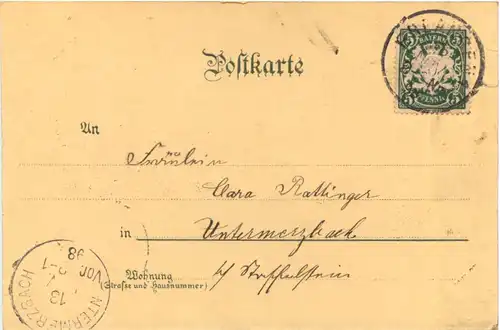 BAYERN
5 5
PFENNIG
Postkarte
An
Fräulein
Clara Rattinger
in Untermerzbach
Wohnung
(Strasse und Hausnummer)
b/ Staffelstein
UNTERMERZBACH
13
Vor. 7
98